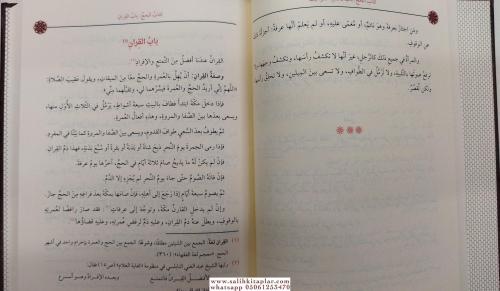 ومن اجتاز بعرفة وهو نائم، أو مُغمًى عليه، أو لم يَعلم أنها عرفة: أجزأه ذلك
عن الوقوف.
والمرأة في جميع ذلك كالرجل، غير أنها لا تكشف رأسها، وتكشف وجهها، ولا
ترفع صوتها بالتلبية، ولا ترمُل في الطواف، ولا تسعى بين الميلين، ولا تحلق رأسها
لكن تُقصِّر.
كتاب الحج: باب القِران
بابُ القِران (١)
القِران عندنا أفضل من التمتع والإفراد (٢).
وصفة القِران: أنْ يُهِلَّ بالعمرة والحج معًا من الميقات، ويقول عقيب الصلاة:
«اللهم إني أريد الحج والعمرة فيسِّرهما لي، وتقبلهما مني».
فإذا دخل مكة ابتدأ فطاف بالبيت سبعة أشواط، يرمُل في الثلاث الأُوَل منها،
ويسعى بعدها بين الصفا والمروة، وهذه أفعال العمرة.
ثم يطوف بعد السعي طواف القدوم، ويسعى بين الصفا والمروة كما بيَّنَّا في المفرد.
فإذا رمى الجمرة يوم النحر ذبح شاة أو بدنة أو بقرة أو سُبع بدنة، فهذا دم القِران.
فإن لم يكن له ما يذبح صام ثلاثة أيام في الحج، آخرها يوم عرفة.
فإن فاته الصوم حتى جاء يوم النحر لم يُجزه إلا الدم.
ثم يصوم سبعة أيام إذا رجع إلى أهله، فإن صامها بمكة بعد فراغه من الحج جاز.
وإن لم يدخل القارن مكة، وتوجه إلى عرفات: فقد صار رافضًا لعمرته
بالوقوف، وبطل عنه دم القِران، وعليه دم لرفض عمرته، وعليه قضاؤها
(١) القِران لغةً: الجمع بين الشيئين مطلقًا، وشرعًا: الجمع بين الحج والعمرة بإحرام واحد في أشهر
الحج. «معجم لغة الفقهاء» (٣٦٠).
www.salihkitaplar.com
whatsapp 05061253470